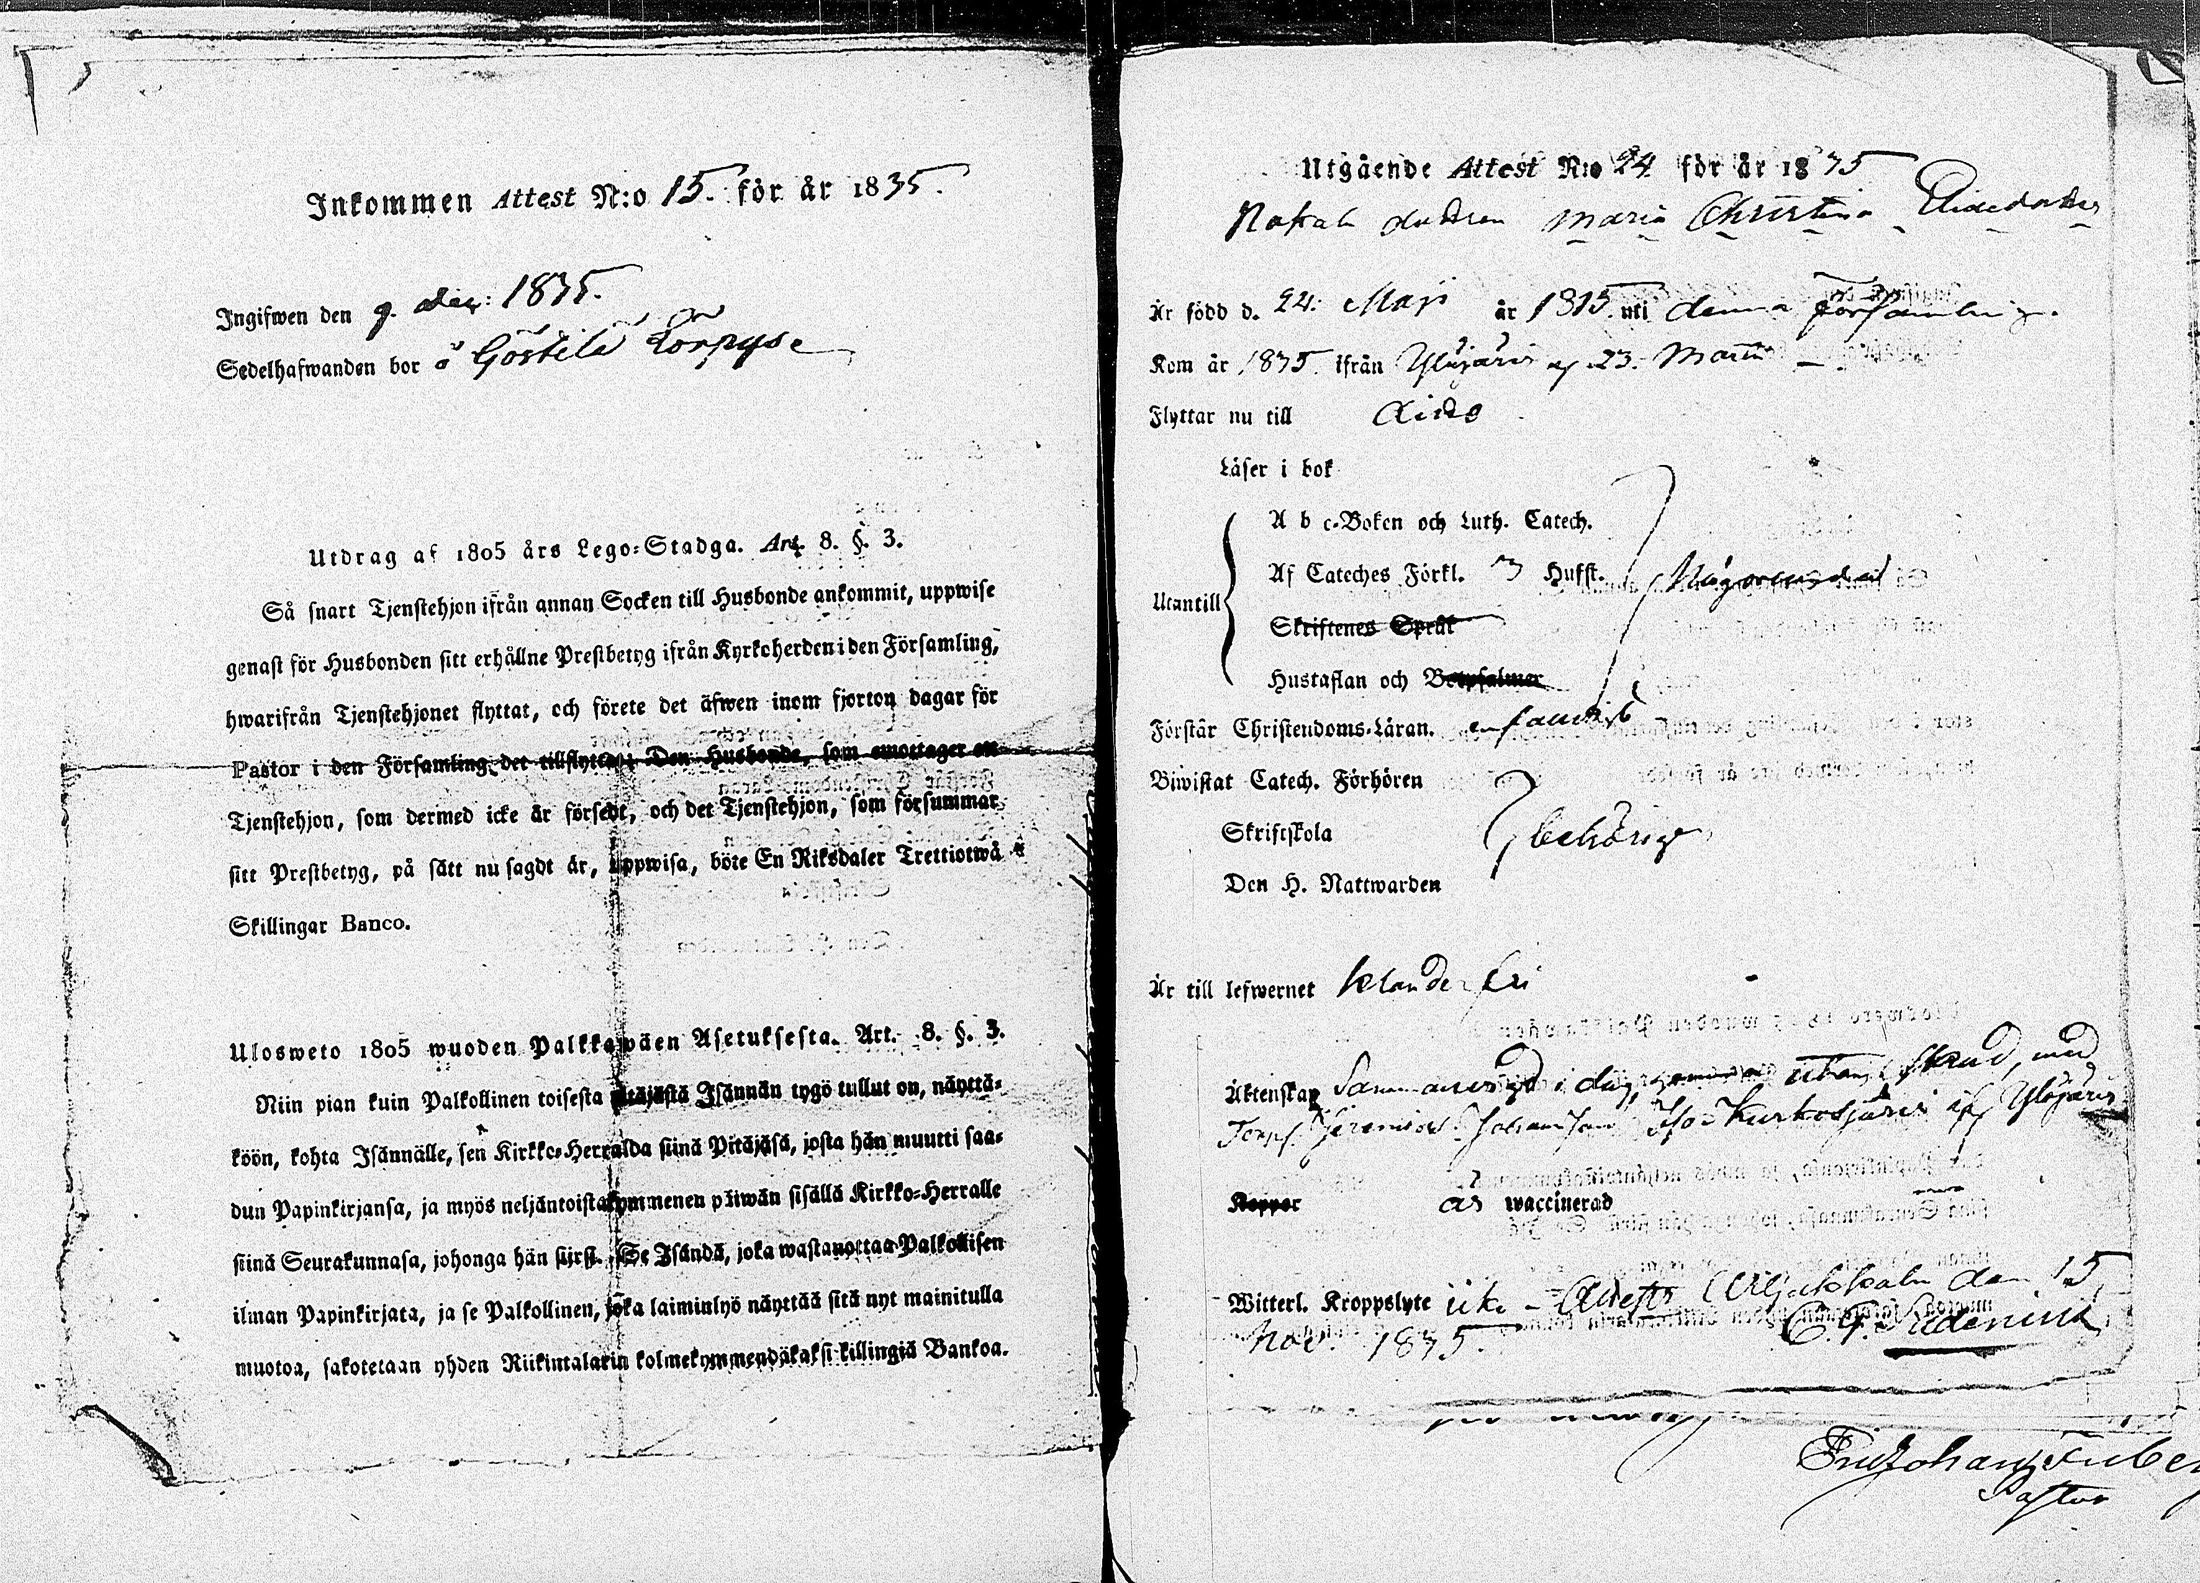 Inkommen Attest N:o 15. för år 1835.
Ingifwen den 9. Dec: 1835.
Sedelhafwanden bor å Göstilä
Utdrag af 1805 års Lego-Stadga. Art. 8. §. 3.
Så snart Tjenstehjon ifrån annan Socken till Husbonde ankommit, uppwise
genast för Husbonden sitt erhållne Prestbetyg ifrån Kyrkoherden i den Församling,
hwarifrån Tjenstehjonet flyttat, och förete det äfwen inom fjorton dagar för
Pastor i den Församling, det tillflyttat; Den Husbonde, som emottager ett
Tjenstehjon, som dermed icke är försedt, och det Tjenstehjon, som försummar
sitt Prestbetyg, på sätt nu sagdt är, uppwisa, böte En Riksdaler Trettiotwå
Skillingar Banco.
Ulosweto 1805 wuoden Palkkawäen Asetuksesta. Art. 8. §. 3.
Niin pian kuin Palkollinen toisesta pitäjästä Isännän tygö tullut on, näyttä-
köön, kohta Isännälle, sen Kirkko-Herralda siinä Pitäjäsä, josta hän muutti saa-
dun Papinkirjansa, ja myös neljäntoistakymmenen päiwän sisällä Kirkko-Herralle
siinä Seurakunnasa, johonga hän siirsi. Se Isändä, joka wastanottaa Palkollisen
ilman Papinkirjata, ja se Palkollinen, joka laiminlyö näyttää sitä nyt mainitulla
muotoa, sakotetaan yhden Riikintalarin kolmekymmendäkaksi killingiä Bankoa.
Utgående Attest N:o 24 för år 1835
dottren Maria Christina
Är född d. 24. Maji år 1815. uti denna församling.
Kom år 1835. ifrån Ylöjärvi af 23. Martii
Flyttar nu till
Läser i bok
A b c-Boken och Luth. Catech.
Af Cateches Förkl. 3 Hufst. Någorlunda
Utantill
Skriftenes Språk
Hustaflan och Botpsalmer
Förstår Christendoms-Läran. enfaldigt
Biwistat Catech. Förhören
Skriftskola behörigt
Den H. Nattwarden
Är till lefwernet klanderfri
Äktenskap Sammanvigd i dag, utan med
Torp. Jeremias Johansson Iso Kurkosjärvi af Ylöjärvi
Koppor är waccinerad
Witterl. Kroppslyte icke – Attest. Wiljakkala den 15
Nov. 1835.
Pastor